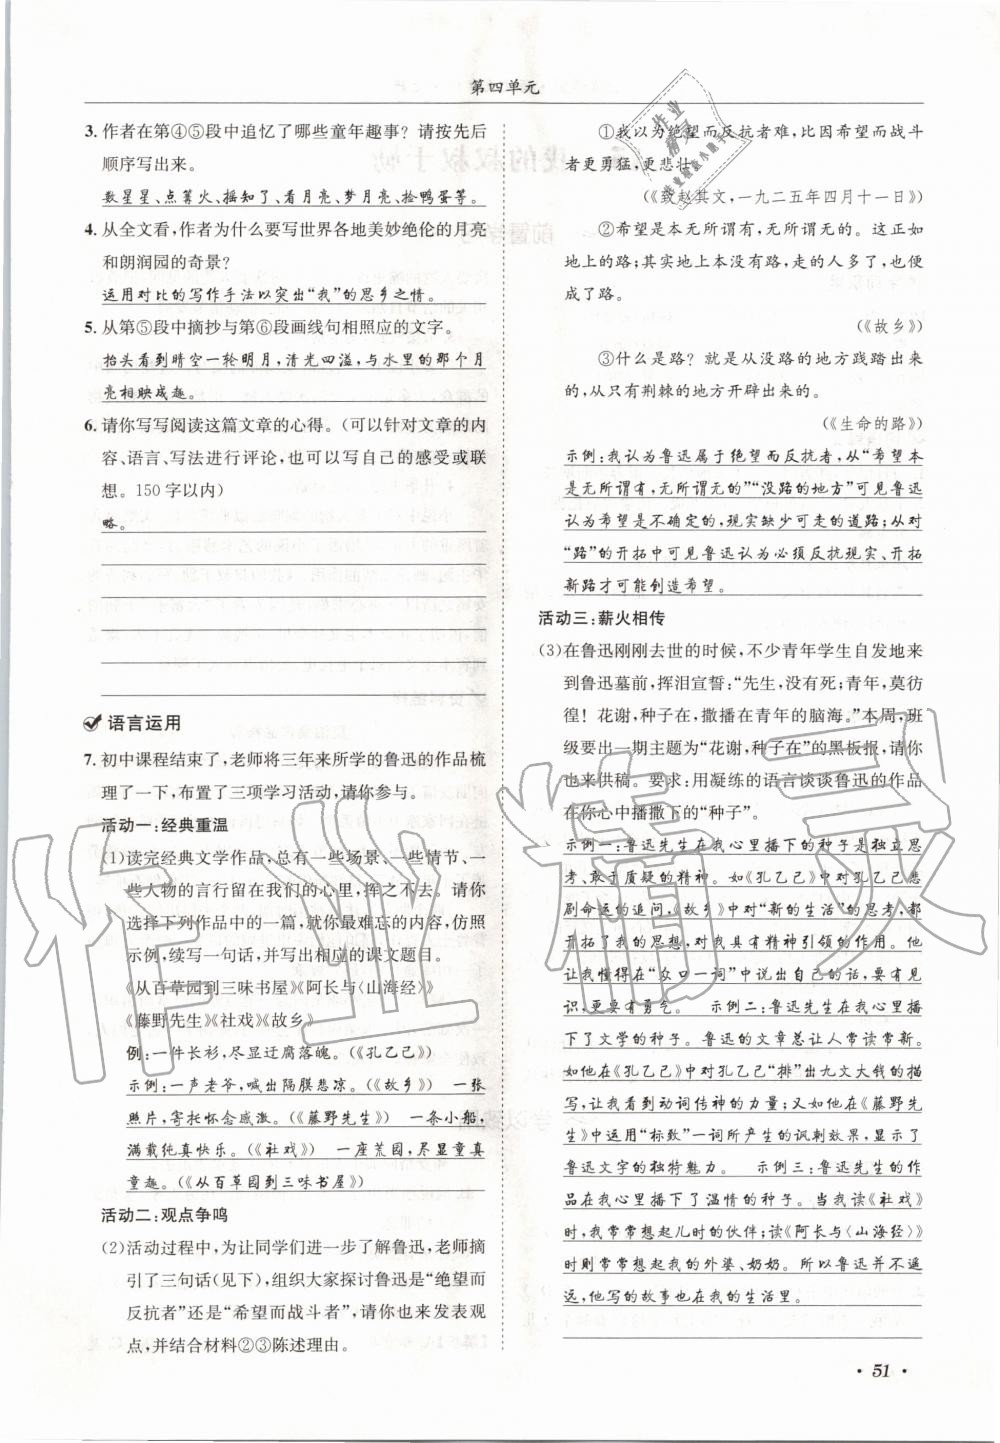 第四单元
3. 作者在第④⑤段中追忆了哪些童年趣事？请按先后
顺序写出来。
数星星、点篝火、摇知了、看月亮、梦月亮、捡鸭蛋等。
4. 从全文看，作者为什么要写世界各地美妙绝伦的月亮
和朗润园的奇景？
运用对比的写作手法以突出“我”的思乡之情。
5. 从第⑤段中摘抄与第⑥段画线句相照应的文字。
抬头看到晴空一轮明月，清光四溢，与水里的那个月
亮相映成趣。
6. 请你写写阅读这篇文章的心得。（可以针对文章的内
容、语言、写法进行评论，也可以写自己的感受或联
想。150字以内）
略。
语言运用
7. 初中课程结束了，老师将三年来所学的鲁迅的作品梳
理了一下，布置了三项学习活动，请你参与。
活动一：经典重温
（1）读完经典文学作品，总有一些场景、一些情节、一
些人物的言行留在我们的心里，挥之不去。请你
选择下列作品中的一篇，就你最难忘的内容，仿照
示例，续写一句话，并写出相应的课文题目。
《从百草园到三味书屋》《阿长与〈山海经〉》
《藤野先生》《社戏》《故乡》
例：一件长衫，尽显迂腐落魄。（《孔乙己》）
示例：一声老爷，喊出隔膜悲凉。（《故乡》）　一张
照片，寄托怀念感激。（《藤野先生》）　一条小船，
满载纯真快乐。（《社戏》）　一座荒园，尽显童真
童趣。（《从百草园到三味书屋》）
活动二：观点争鸣
（2）活动过程中，为让同学们进一步了解鲁迅，老师摘
引了三句话（见下），组织大家探讨鲁迅是“绝望而
反抗者”还是“希望而战斗者”，请你也来发表观
点，并结合材料②③陈述理由。
①我以为绝望而反抗者难，比因希望而战斗
者更勇猛，更悲壮。
（《致赵其文，一九二五年四月十一日》）
②希望是本无所谓有，无所谓无的。这正如
地上的路；其实地上本没有路，走的人多了，也便
成了路。
（《故乡》）
③什么是路？就是从没路的地方践踏出来
的，从只有荆棘的地方开辟出来的。
（《生命的路》）
示例：我认为鲁迅属于绝望而反抗者，从“希望本
是无所谓有，无所谓无的”“没路的地方”可见鲁迅
认为希望是不确定的，现实缺少可走的道路；从对
“路”的开拓中可见鲁迅认为必须反抗现实、开拓
新路才可能创造希望。
活动三：薪火相传
（3）在鲁迅刚刚去世的时候，不少青年学生自发地来
到鲁迅墓前，挥泪宣誓：“先生，没有死；青年，莫彷
徨！花谢，种子在，撒播在青年的脑海。”本周，班
级要出一期主题为“花谢，种子在”的黑板报，请你
也来供稿。要求：用凝练的语言谈谈鲁迅的作品
在你心中播撒下的“种子”。
示例一：鲁迅先生在我心里播下的种子是独立思
考、敢于质疑的精神。如《孔乙己》中对孔乙己悲
剧命运的追问，《故乡》中对“新的生活”的思考，都
开拓了我的思想，对我具有精神引领的作用。他
让我懂得在“众口一词”中说出自己的话，要有见
识，更要有勇气。　示例二：鲁迅先生在我心里播
下了文学的种子。鲁迅的文章总让人常读常新。
如他在《孔乙己》中对孔乙己“排”出九文大钱的描
写，让我看到动词传神的力量；又如他在《藤野先
生》中运用“标致”一词所产生的讽刺效果，显示了
鲁迅文字的独特魅力。　示例三：鲁迅先生的作
品在我心里播下了温情的种子。当我读《社戏》
时，我常常想起儿时的伙伴；读《阿长与〈山海经〉》
时，我常常想起我的外婆、奶奶。所以鲁迅并不遥
远，他写的故事也在我的生活里。
· 51 ·
作业精灵